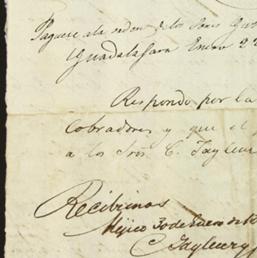 Paguese ala orden de los Sres
Guadalajara Enero 22
Respondo por la
Cobradores y que el
a los Sres C. Tayleur
Recibimos
Mejico 30 de Enero de
C Tayleur y